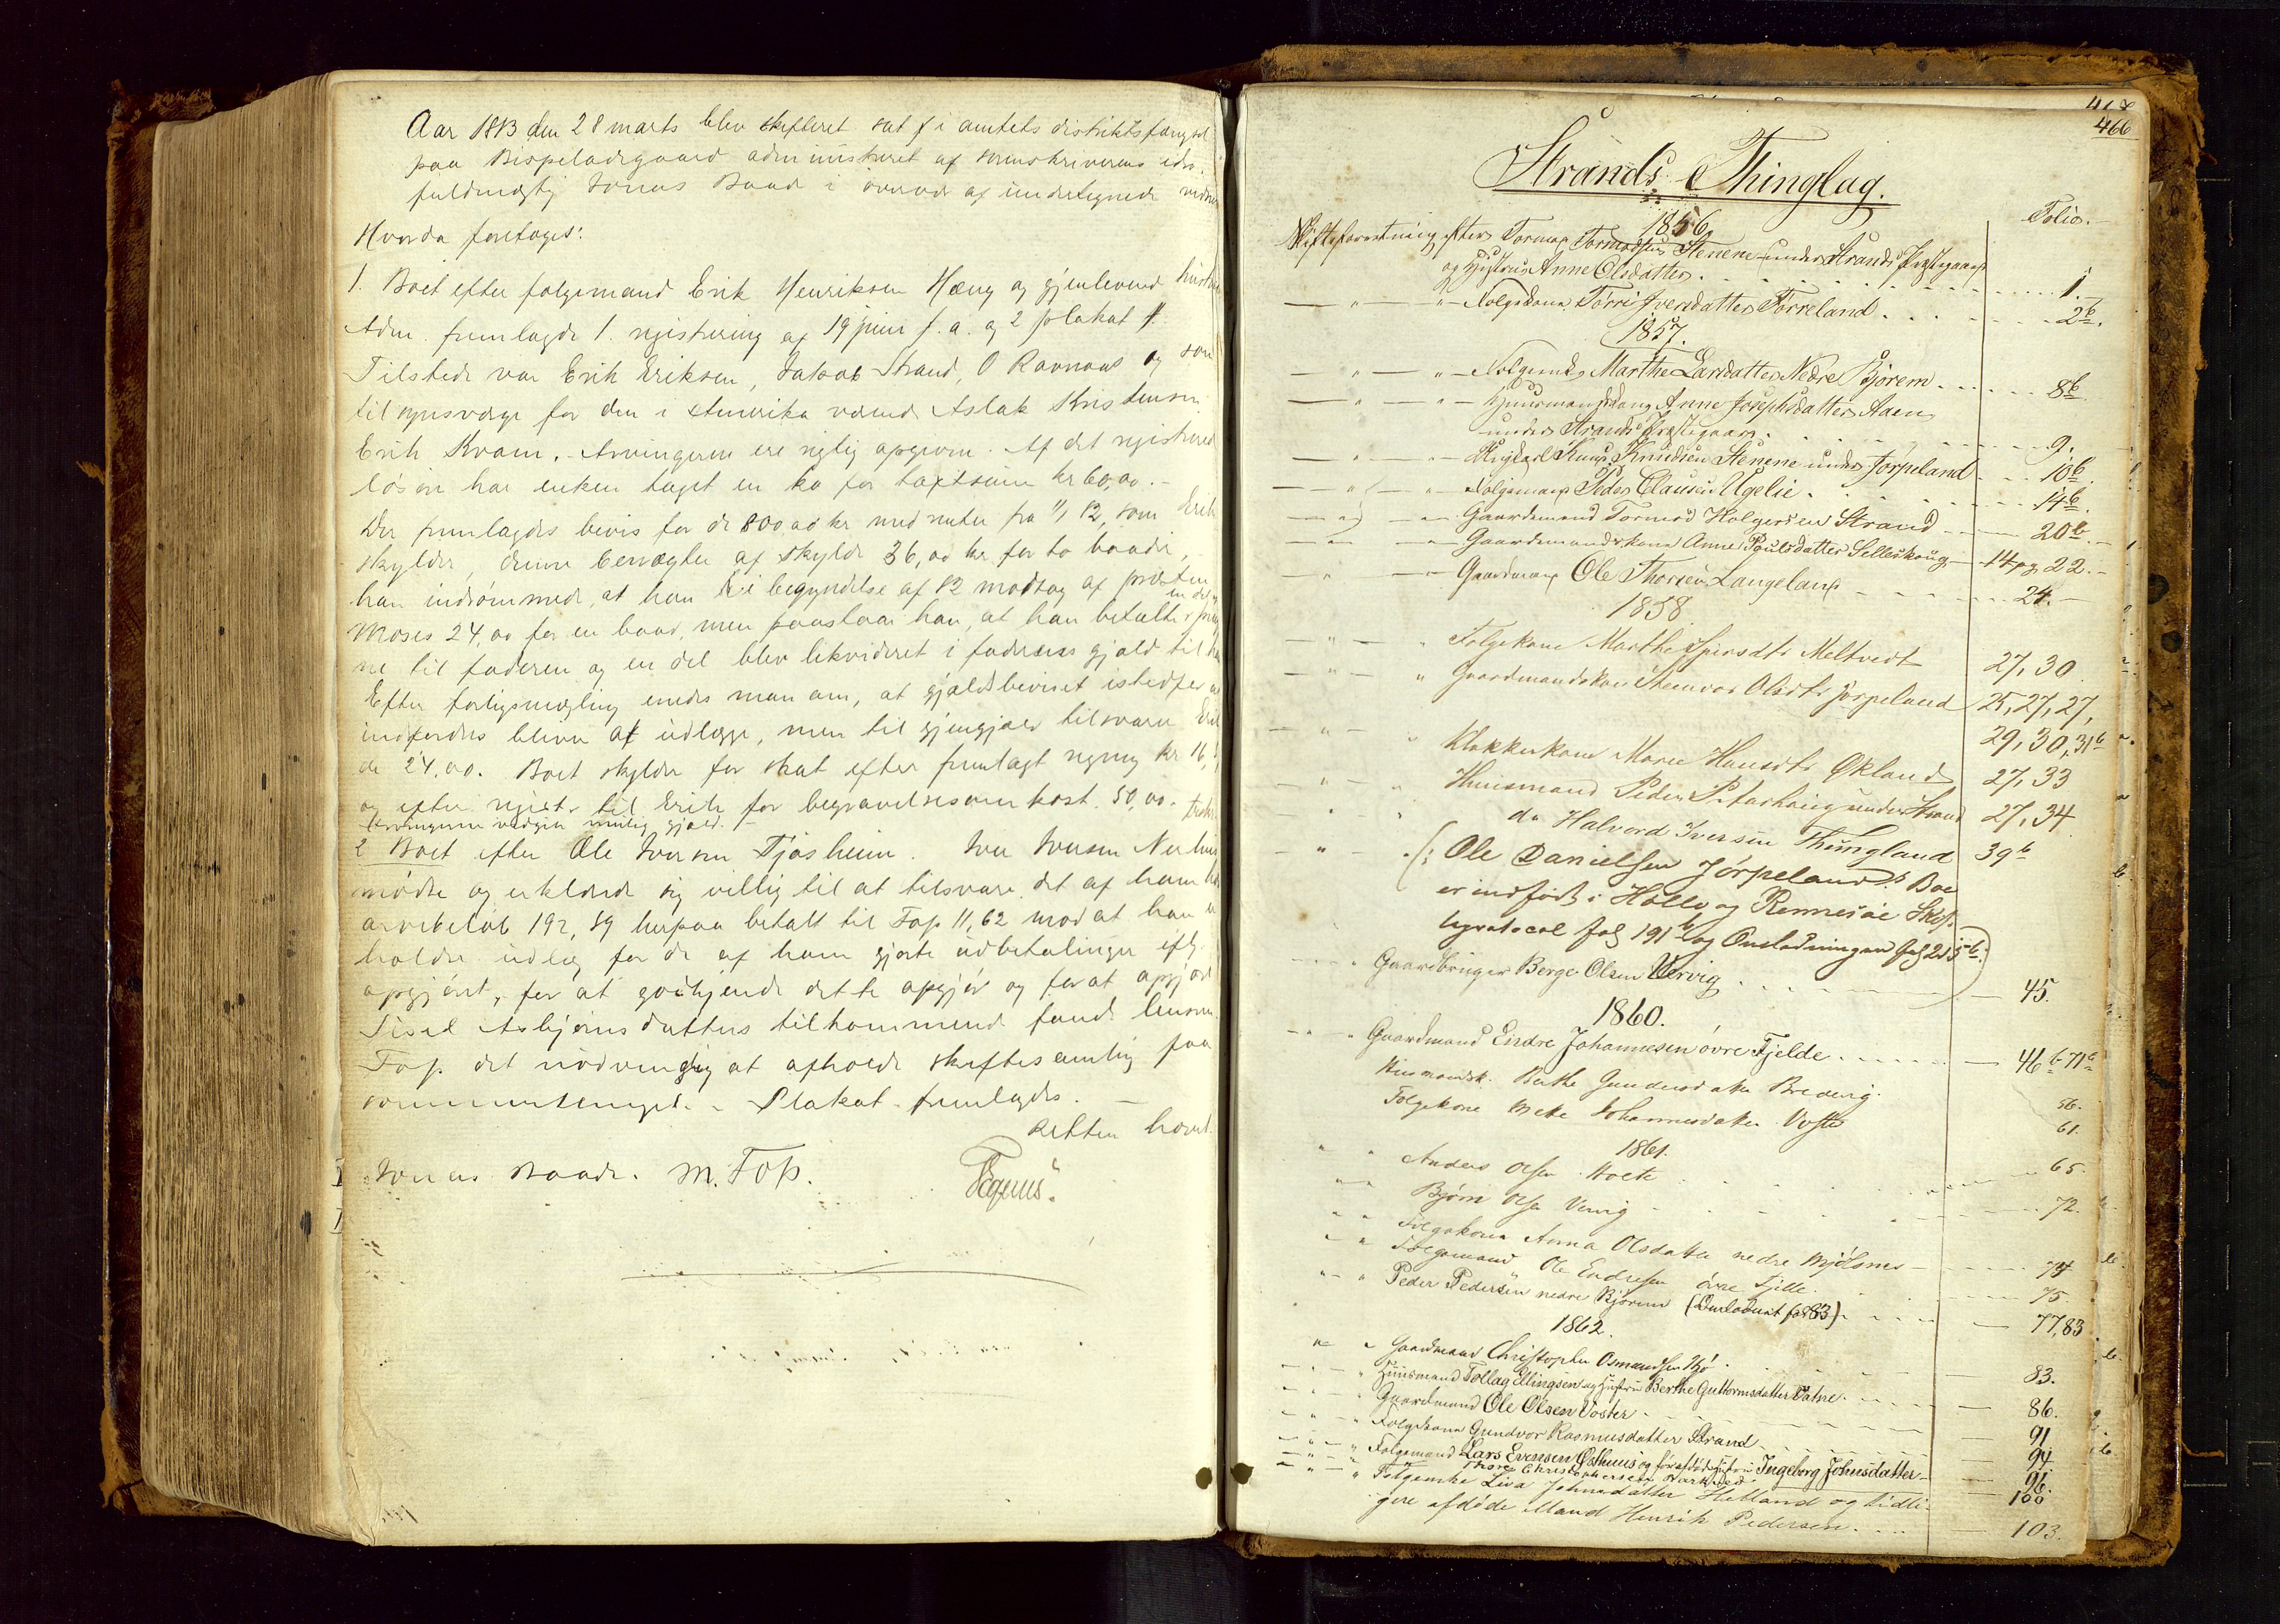 Aar 1883 den 28 marts blev skifteret sat i amtets distriktsfængsel
paa Bispeladegaard administreret af sorenskriverens eds.
fuldmægtig Jonas Baade i overvær af undertegnede vidner
Hvorda foretoges:
1. Boet efter folgemand Erik Henriksen Hæng og gjenlevende hustru
Adm. fremlagde 1. registrering af 19 juni f. a. og 2 plakat
Tilstede var Erik Eriksen, Jakob Strand, O Ravnaas og som
tilsynsværge for den i Amerika værende Aslak Kristensen
Erik Kvam. Arvingerne ere rigtig opgivne. Af det registrerede
løsøre har enken taget en ko for taxtsum kr 60,00.
Der fremlagdes bevis for de 800,00 kr med renter fra 1/1 82, som Erik
skylder, denne benægter at skylde 36,00 kr for to baade,
han indrømmede, at han i begyndelse af 82 modtog af presten
Moses 24,00 for en baad, men paastaar han, at han betalte
ne til faderen og en del blev likvideret i faderens gjæld til
Efter forligsmægling enedes man om, at gjældsbeviset istedfor at
inddrives bliver at udlægge, men til gjengjæld tilsvarer Erik
de 24,00. Boet skylder for skat efter fremlagt regning kr 16,
og efter registr. til Erik for begravelsesomkost. 50,00.
Arvingerne vedgik mulig gjæld.
2 Boet efter Ole Iversen Tjøsheim. Iver Iversen
mødte og erklærede sig villig til at tilsvare det af ham
arvebeløb 192,89 herpaa betalt til Fop 11,62 mod at han
holder udlæg for de af ham gjorte udbetalinger
opgjøret, for at godkjende dette opgjør og for at opgjøre
Sissel Asbjørnsdatters tilkommende fandt lensm.
Fop. det nødvendig at afholde skiftesamling paa
sommertinget. - Plakat fremlagdes. -
Retten hævet.
Jonas Baade. M. Fop.
466
Strands Thinglag.
Folio.
1856.
Skifteforretning efter Tormod Tormodsen Stenene under Strands Præstegaard
og Hustru Anne Olsdatter . . . 1.
— " — " — Folgekone Torri Iversdatter Tørreland . . . 2b.
1857.
— " — " — Folgemds Marthe Larsdatter Nedre Bjørem . . . 8b
— " — " — Huusmandskone Anne Josephsdatter Aaen
under Strands Præstegaard . . . 9.
— " — " — Pigekarl Knud Knudsen Stenene under Jørpeland . . . 10b.
— " — " — Folgemand Peder Clausen Ugelie . . . 14b.
— " — " — Gaardemand Tormod Holgersen Strand . . . 20b.
— " — " — Gaardemandskone Anne Poulsdatter Selleskoug — 14 og 22.
— " — " — Gaardmand Ole Thorsen Langeland . . . 24.
1858
Folgekone Marthe Iversdtr Meltvedt 27, 30
" Gaardmandskone Steenvor Olsdtr Jørpeland 25, 27, 27,
29, 30, 31b
" Klokkerkone Maren Hansdtr Økland 27, 33
" Huusmand Peder Pedershaug under Strand 27, 34
do Halvord Iversen Thungland 39b
(: Ole Danielsen Jørpelands Boe
er indført i Holle og Rennesøe Skif-
teprotocol fol 191b og Omslutningen fol 215b:)
" Gaardbruger Berge Olsen Vervig . . . 45.
1860.
" Gaardmand Endre Johannesen øvre Fjelde . . . 46b 71a
Husmandsk. Berthe Gundersdatter Brevig. 56.
Folgekone Mette Johannesdatter Voster 61.
1861.
" " Anders Olsen Nolte . . . 65.
" " Bjørn Olsen Vervig . . . 72.
" " Folgekone Anna Olsdatter nedre Mjølsnes . . . 74
" " Folgemand Ole Endresen øvre Fjelle. . . . 75
" " Peder Pedersen nedre Bjørem (Omlodnet fol 83) . . . 77,83
1862.
" " Gaardmand Christopher Osmundsen Bø . . . 83.
" " Huusmand Tollag Ellingsen og Hustru Berthe Guttormsdatter Tatne . . . 86.
" " Gaardmand Ole Olsen Voster . . . 91
" " Folgekone Gundvor Rasmusdatter Strand . . . 94
" " Folgemand Lars Evensen Østhuus og forrafdøde Hustru Ingeborg Johnsdatter — 96.
Thore Christophersen Barkved 100
" Folgemke Lisa Johnsdatter Hetland og tidli-
gere afdøde Mand Henrik Pedersen . . . 103.